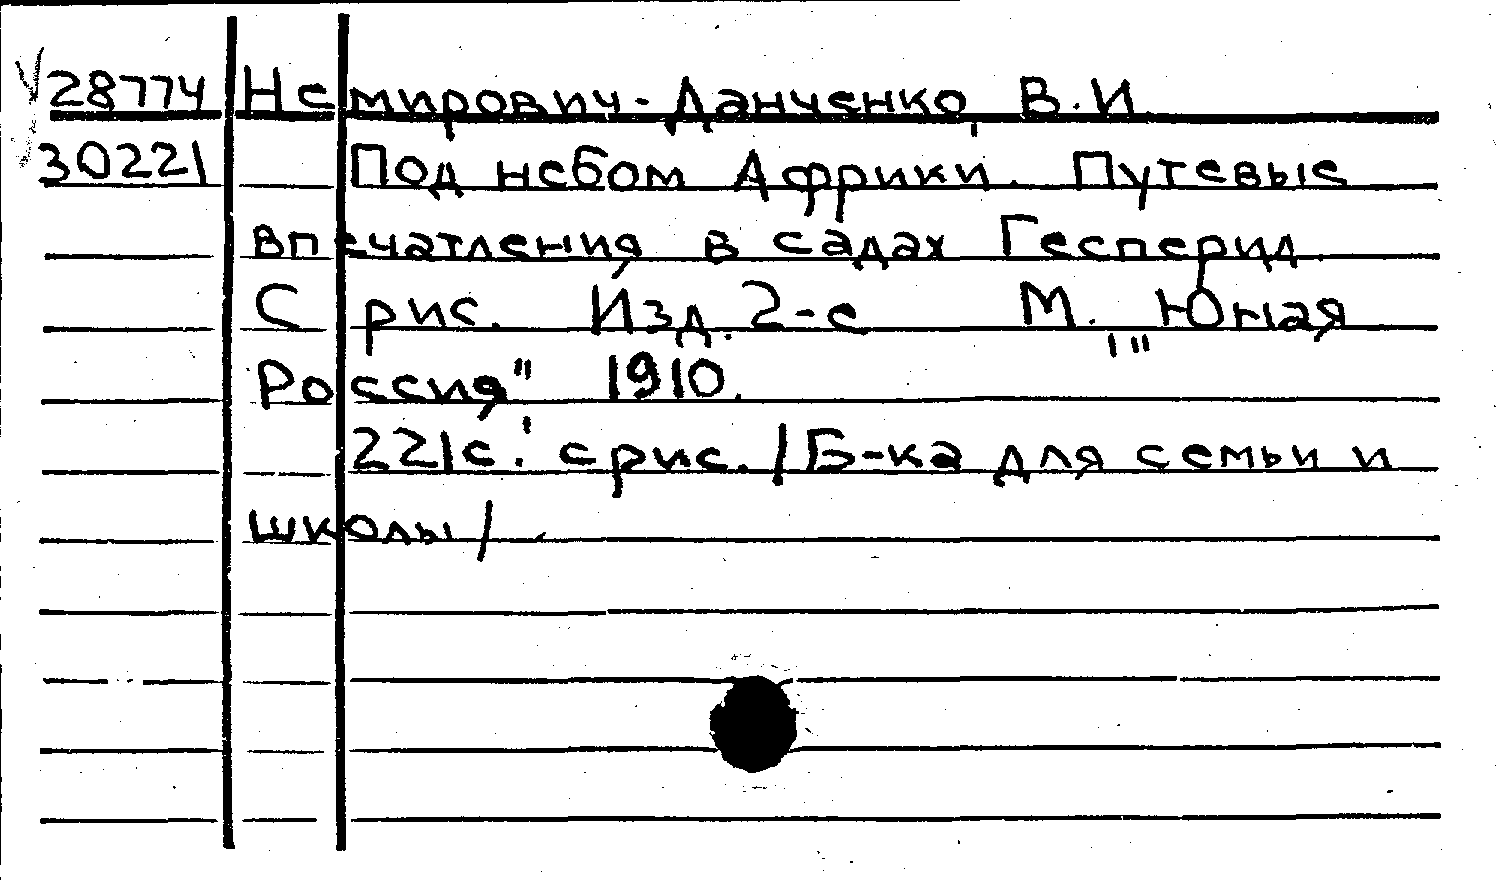 28774 Немирович-Данченко, В.И.
30221 Под небом Африки. Путевые
впечатления в садах Гесперид.
С рис. Изд. 2-е М., "Юная
Россия" 1910.
221с.: с рис. /Б-ка для семьи и
школы/.